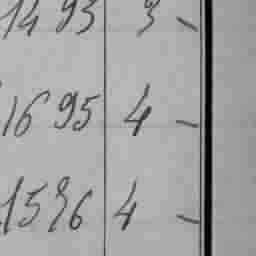 1493 3 -
1695 4 -
1576 4 -